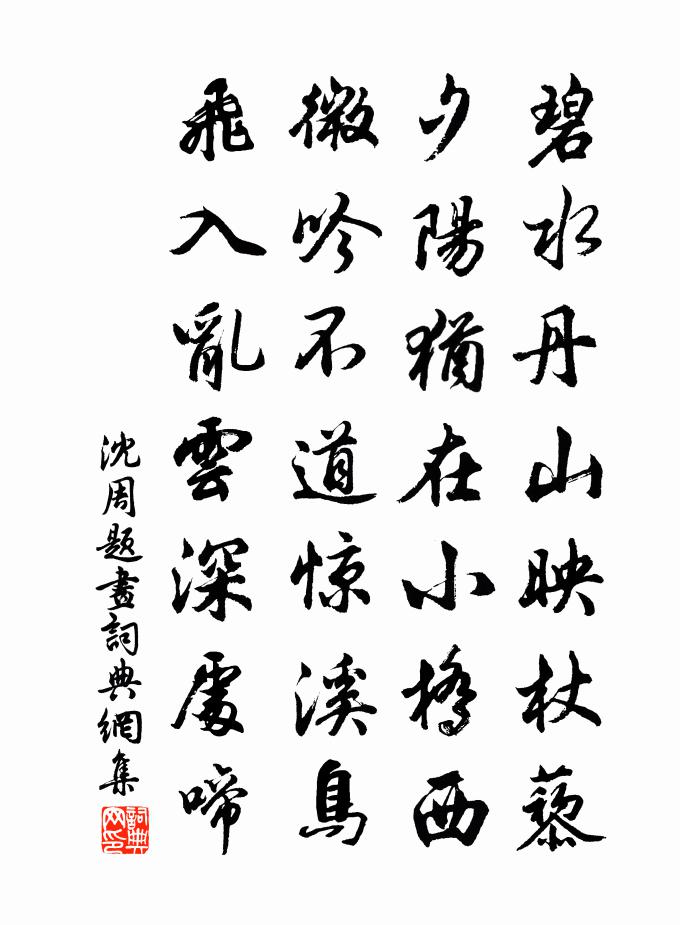 碧水丹山映杖藜
夕陽猶在小橋西
微吟不道惊溪鳥
飛入亂雲深處啼
沈周题畫詞典網集
詞典网印